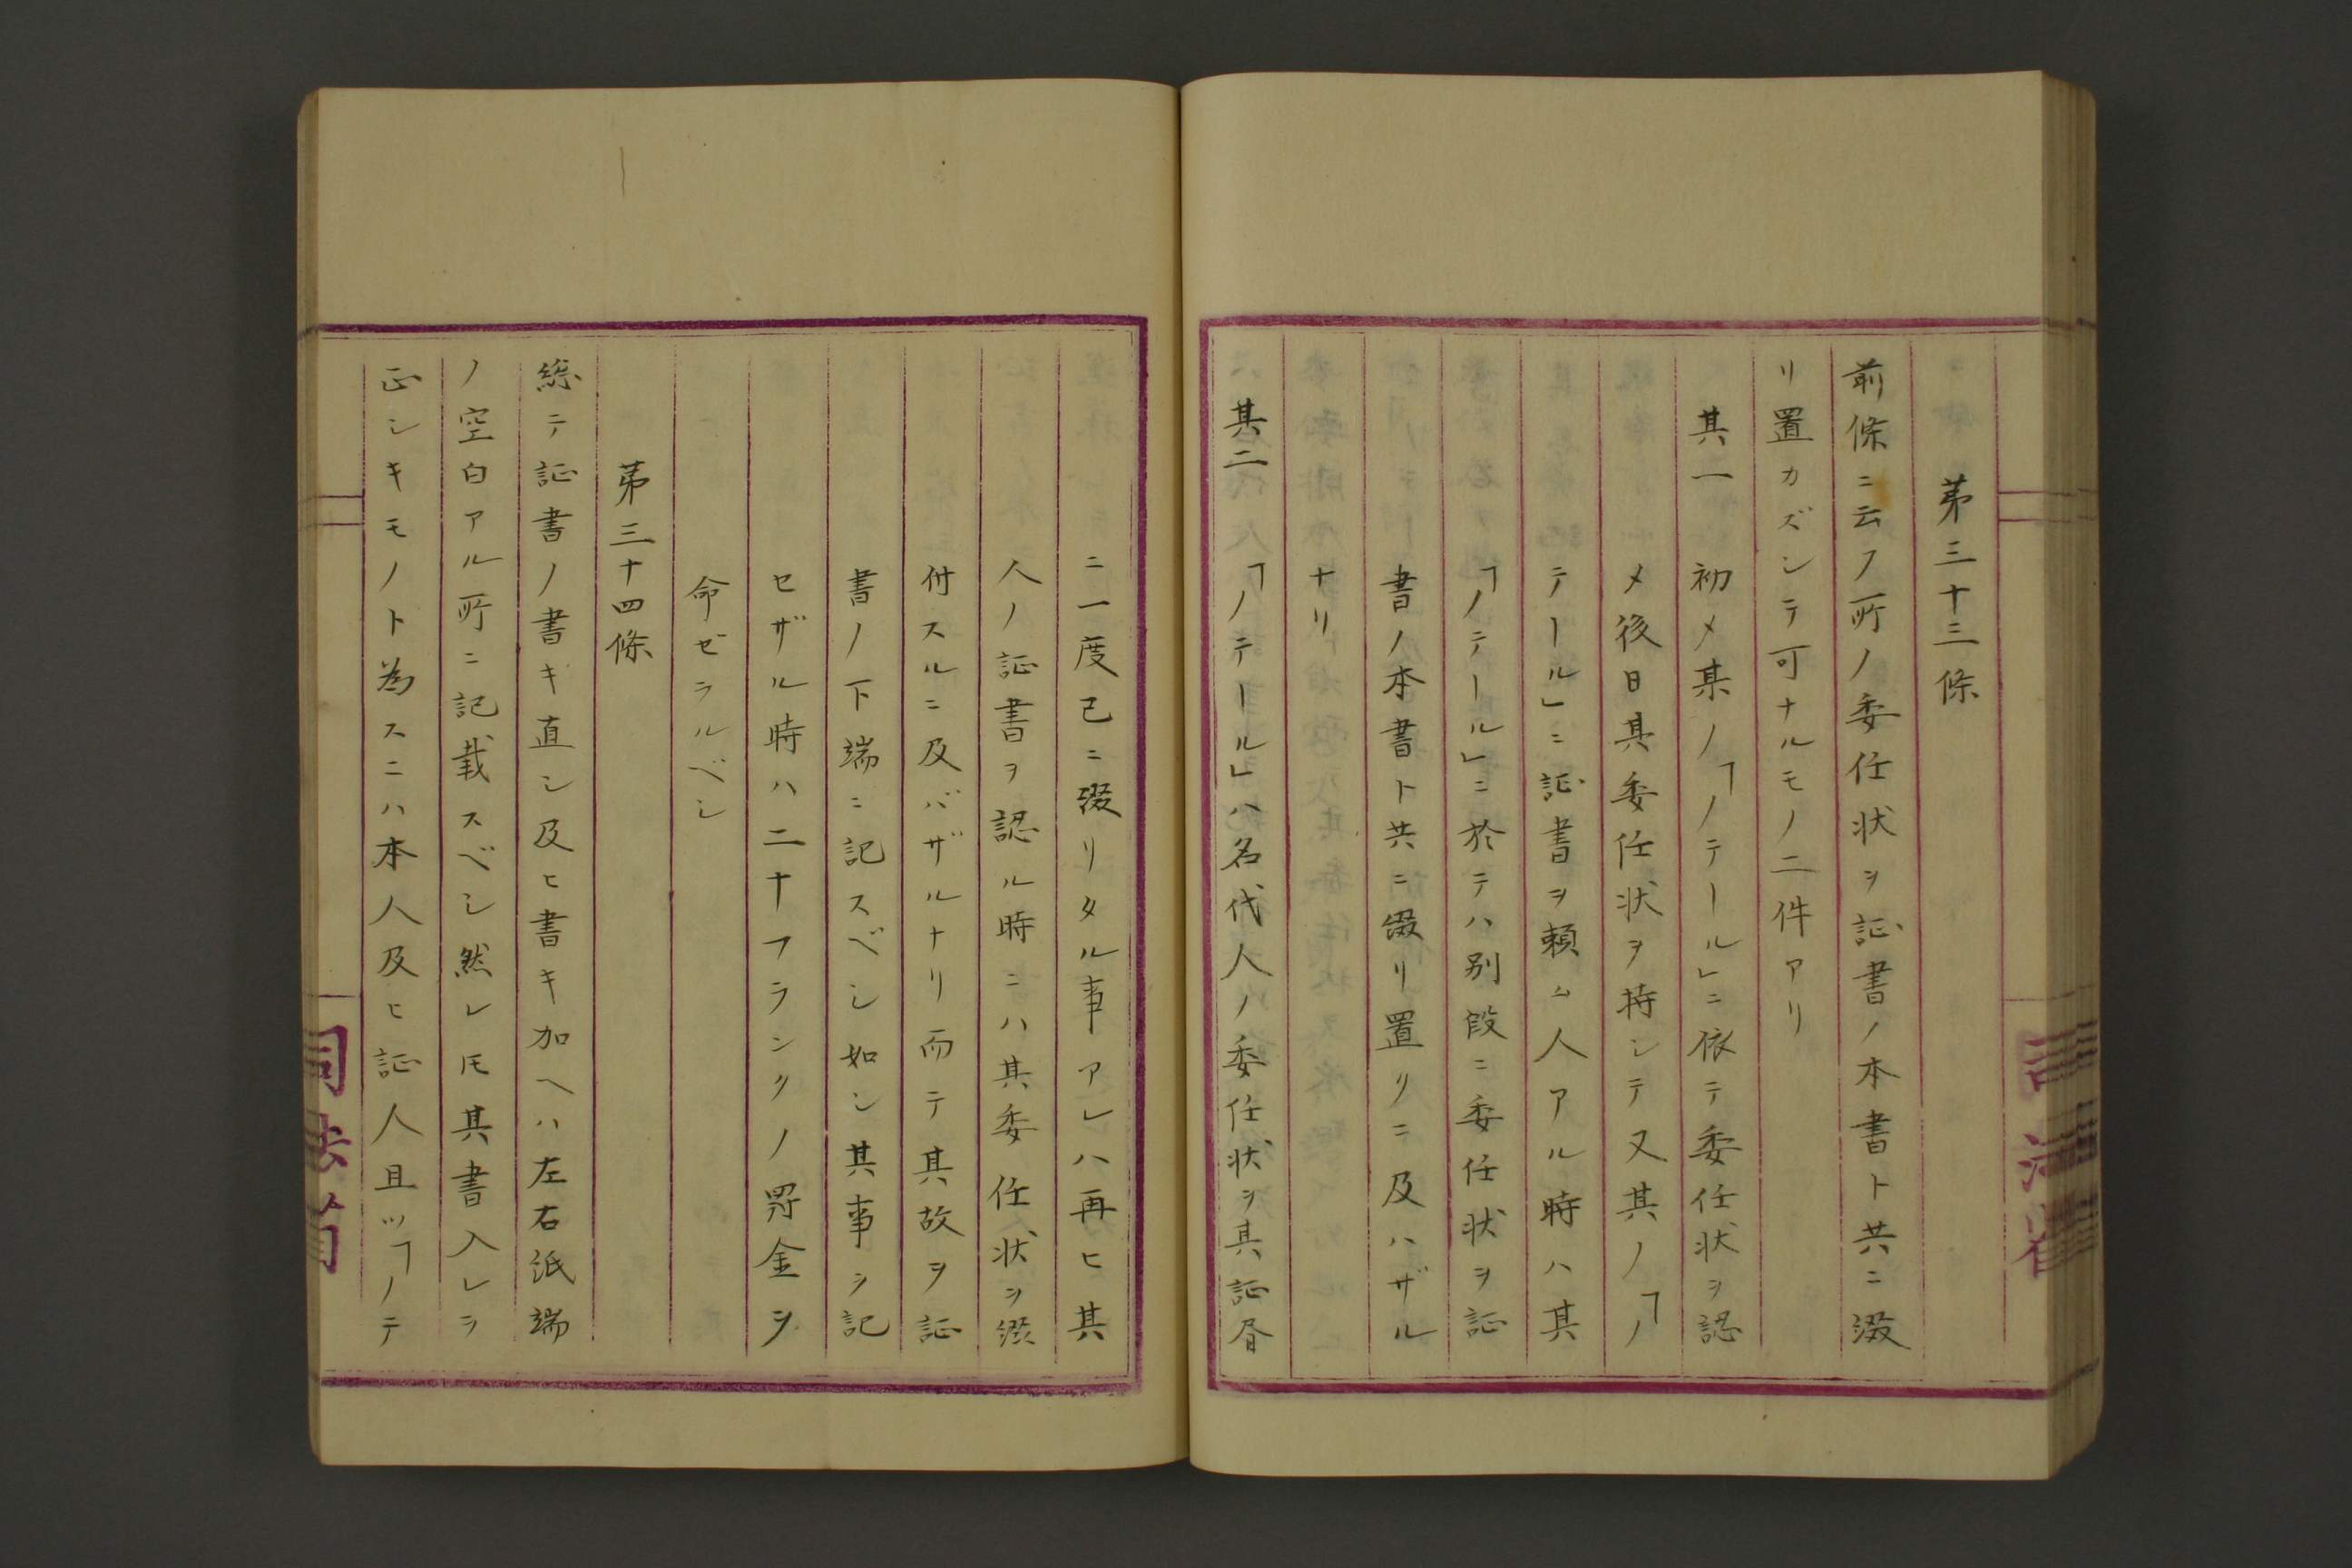 第三十三條
前條ニ云フ所ノ委任状ヲ証書ノ本書ト共ニ綴
リ置カズシテ可ナルモノ二件アリ
其一 初メ某ノ「ノテール」ニ依テ委任状ヲ認
メ後日其委任状ヲ持シテ又其ノ「ノ
テール」ニ証書ヲ頼ム人アル時ハ其
「ノテール」ニ於テハ別段ニ委任状ヲ証
書ノ本書ト共ニ綴リ置クニ及ハザル
ナリ
其二 「ノテール」ハ名代人ノ委任状ヲ其証書
ニ一度已ニ綴リタル事アレハ再ヒ其
人ノ証書ヲ認ル時ニハ其委任状ヲ綴
付スルニ及バザルナリ而テ其故ヲ証
書ノ下端ニ記スベシ如シ其事ヲ記
セザル時ハ二十フランクノ罸金ヲ
命ゼラルベシ
第三十四條
総テ証書ノ書キ直シ及ヒ書キ加ヘハ左右紙端
ノ空白アル所ニ記載スベシ然レ𪜈其書入レヲ
正シキモノト為スニハ本人及ヒ証人且ツ「ノテ
司法省
司法省